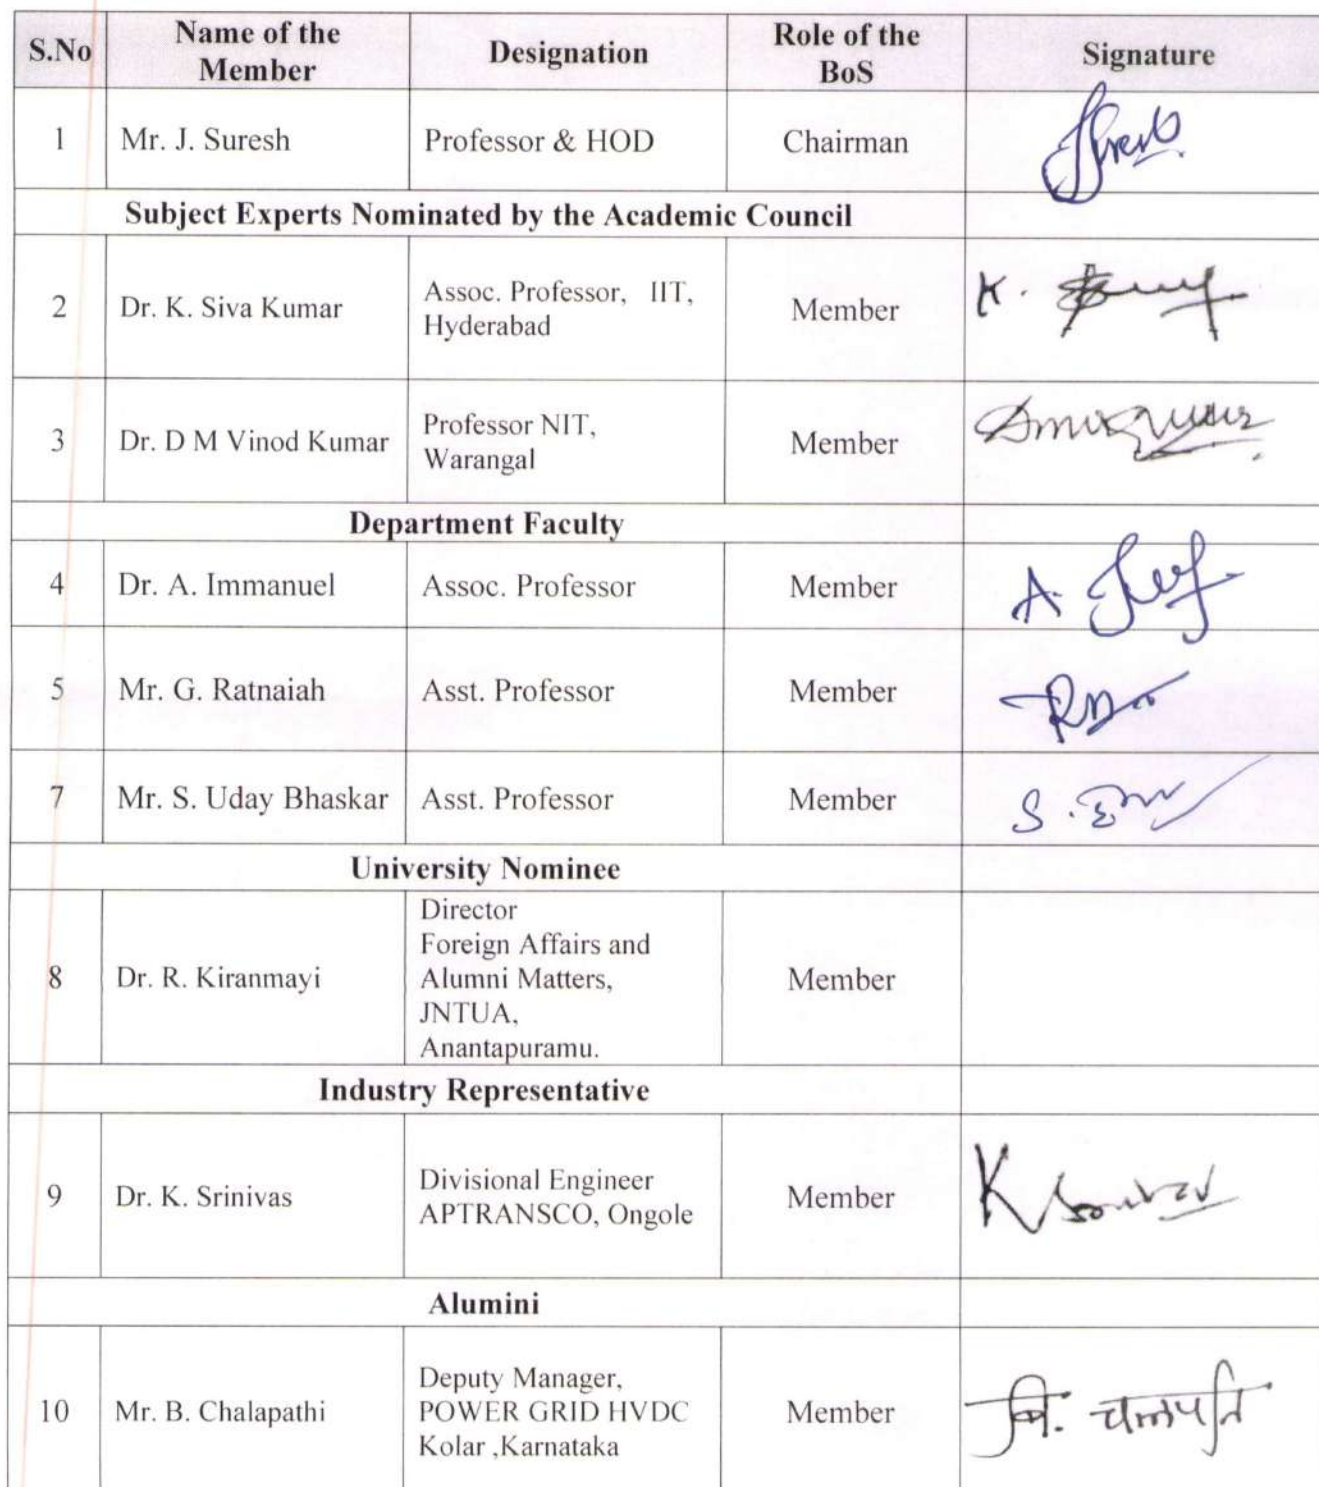 S.No Name of the Member Designation Role of the BoS Signature
1 Mr. J. Suresh Professor & HOD Chairman
Subject Experts Nominated by the Academic Council
2 Dr. K. Siva Kumar Assoc. Professor, IIT, Hyderabad Member K.
3 Dr. D M Vinod Kumar Professor NIT, Warangal Member
Department Faculty
4 Dr. A. Immanuel Assoc. Professor Member A.
5 Mr. G. Ratnaiah Asst. Professor Member
7 Mr. S. Uday Bhaskar Asst. Professor Member S.
University Nominee
8 Dr. R. Kiranmayi Director Foreign Affairs and Alumni Matters, JNTUA, Anantapuramu. Member
Industry Representative
9 Dr. K. Srinivas Divisional Engineer APTRANSCO, Ongole Member K
Alumini
10 Mr. B. Chalapathi Deputy Manager, POWER GRID HVDC Kolar ,Karnataka Member बि. चलपति